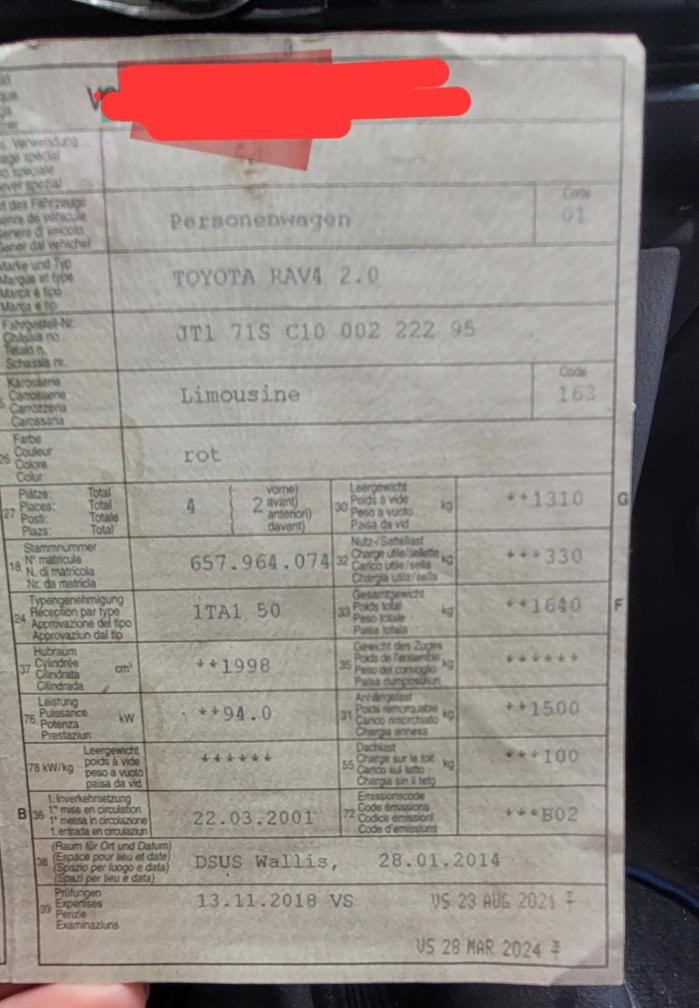 Verwendung
Code
Personenwagen 01
Marke und Typ
Marque et type
Marca e tipo
Marca e tip
TOYOTA RAV4 2.0
Fahrgestell-Nr.
Châssis no
Telaio n.
Schassis nr.
JT1 71S C10 002 222 95
Karosserie
Carrosserie
Carrozzeria
Carossaria
Limousine
Code
163
26
Farbe
Couleur
Colore
Colur
rot
27
Plätze: Total
Places: Total
Posti: Totale
Plazs: Total
4 { 2
vorne)
avant)
anteriori)
davent)
30
Leergewicht
Poids à vide
Peso a vuoto
Paisa da vid
kg
**1310 G
18
Stammnummer
N° matricule
N. di matricola
Nr. da matricla
657.964.074
32
Nutz-/Sattellast
Charge utile/sellette
Carico utile/sella
Chargia utila/sella
kg
***330
24
Typengenehmigung
Réception par type
Approvazione del tipo
Approvaziun dal tip
1TA1 50
33
Gesamtgewicht
Poids total
Peso totale
Paisa totala
kg
**1640 F
37
Hubraum
Cylindrée
Cilindrata
Cilindrada
cm³
**1998
35
Gewicht des Zuges
Poids de l'ensemble
Peso del convoglio
Paisa cumposiziun
kg
******
76
Leistung
Puissance
Potenza
Prestaziun
kW
**94.0
31
Anhängelast
Poids remorquable
Carico rimorchiato
Chargia annexa
kg
**1500
78 kW/kg
Leergewicht
poids à vide
peso a vuoto
paisa da vid
******
55
Dachlast
Charge sur le toit
Carico sul tetto
Chargia sin il tetg
kg
***100
B 36
1. Inverkehrsetzung
1re mise en circulation
1a messa in circolazione
1. entrada en circulaziun
22.03.2001
72
Emissionscode
Code émissions
Codice emissioni
Code d'emissiuns
***B02
38
(Raum für Ort und Datum)
(Espace pour lieu et date)
(Spazio per luogo e data)
(Spazi per lieu e data)
DSUS Wallis, 28.01.2014
39
Prüfungen
Expertises
Perizie
Examinaziuns
13.11.2018 VS VS 23 AUG 2021
VS 28 MAR 2024